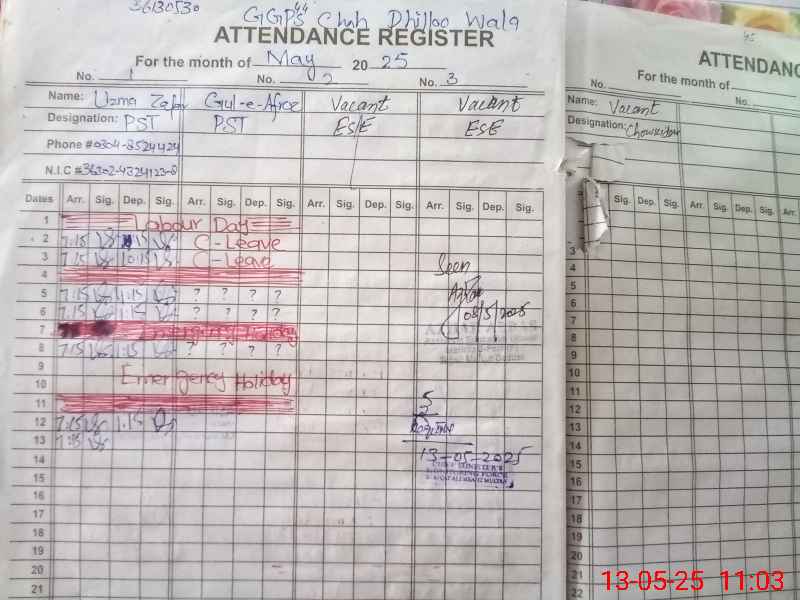 36130530
GGPS Chah Dhilloo Wala
ATTENDANCE REGISTER
For the month of May 2025
No. 1 No. 2 No. 3
Name: Uzma Zafar Gul-e-Afroz Vacant Vacant
Designation: PST PST ESE ESE
Phone #0304-8524424
N.I.C #36302-4324123-8
Dates Arr. Sig. Dep. Sig. Arr. Sig. Dep. Sig. Arr. Sig. Dep. Sig. Arr. Sig. Dep. Sig.
1 Labour Day
2 7:15 1:15 C-Leave
3 7:15 10:15 C-Leave
4 Seen
5 7:15 1:15 ? ? ? ?
6 7:15 1:15 ? ? ? ? 08/5/2025
7 Emergency Holiday
8 7:15 1:15 ? ? ? ?
9
10 Emergency Holiday
11 5
12 7:15 1:15
13 7:15
14 13-05-2025
CHIEF MINISTER'S
MONITORING FORCE
15
16
17
18
19
20
21
45
ATTENDANC
For the month of
No. No.
Name: Vacant
Designation: Chowkidar
Sig. Dep. Sig. Arr. Sig. Dep. Sig. Arr.
3
4
5
6
7
8
9
10
11
12
13
14
15
16
17
18
19
20
21
22
13-05-25 11:03